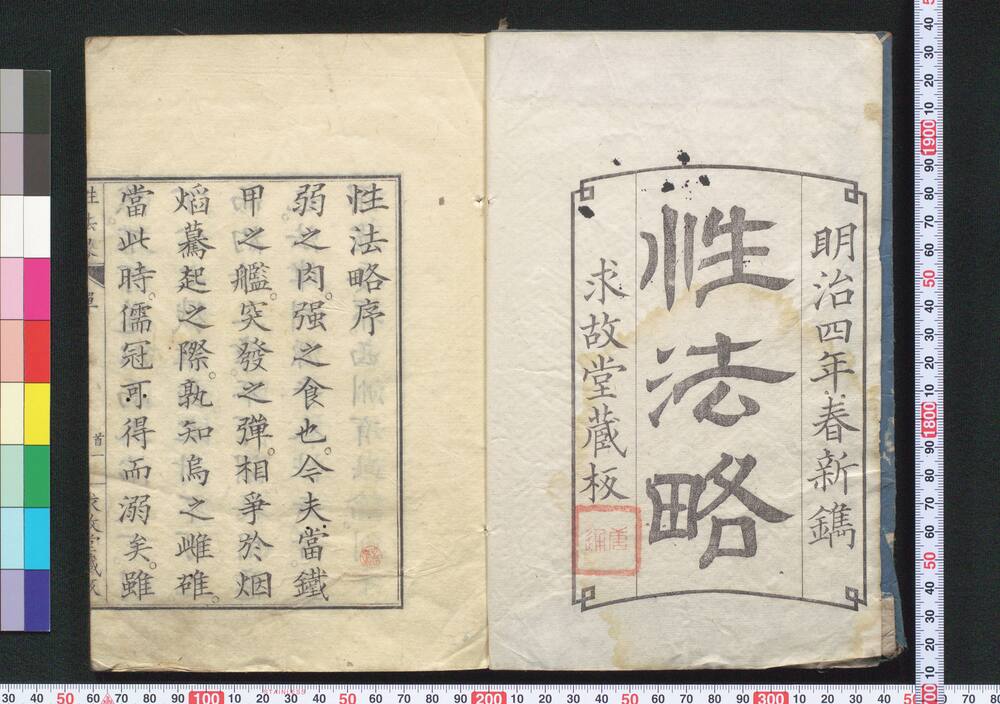 明治四年春新鐫
性法略
求故堂蔵板
性法略序
弱之肉。强之食也。今夫當鐵
甲之艦。突發之彈。相爭於烟
焰驀起之際。孰知烏之雌碓。
當此時。儒冠可得而溺矣。雖
首一